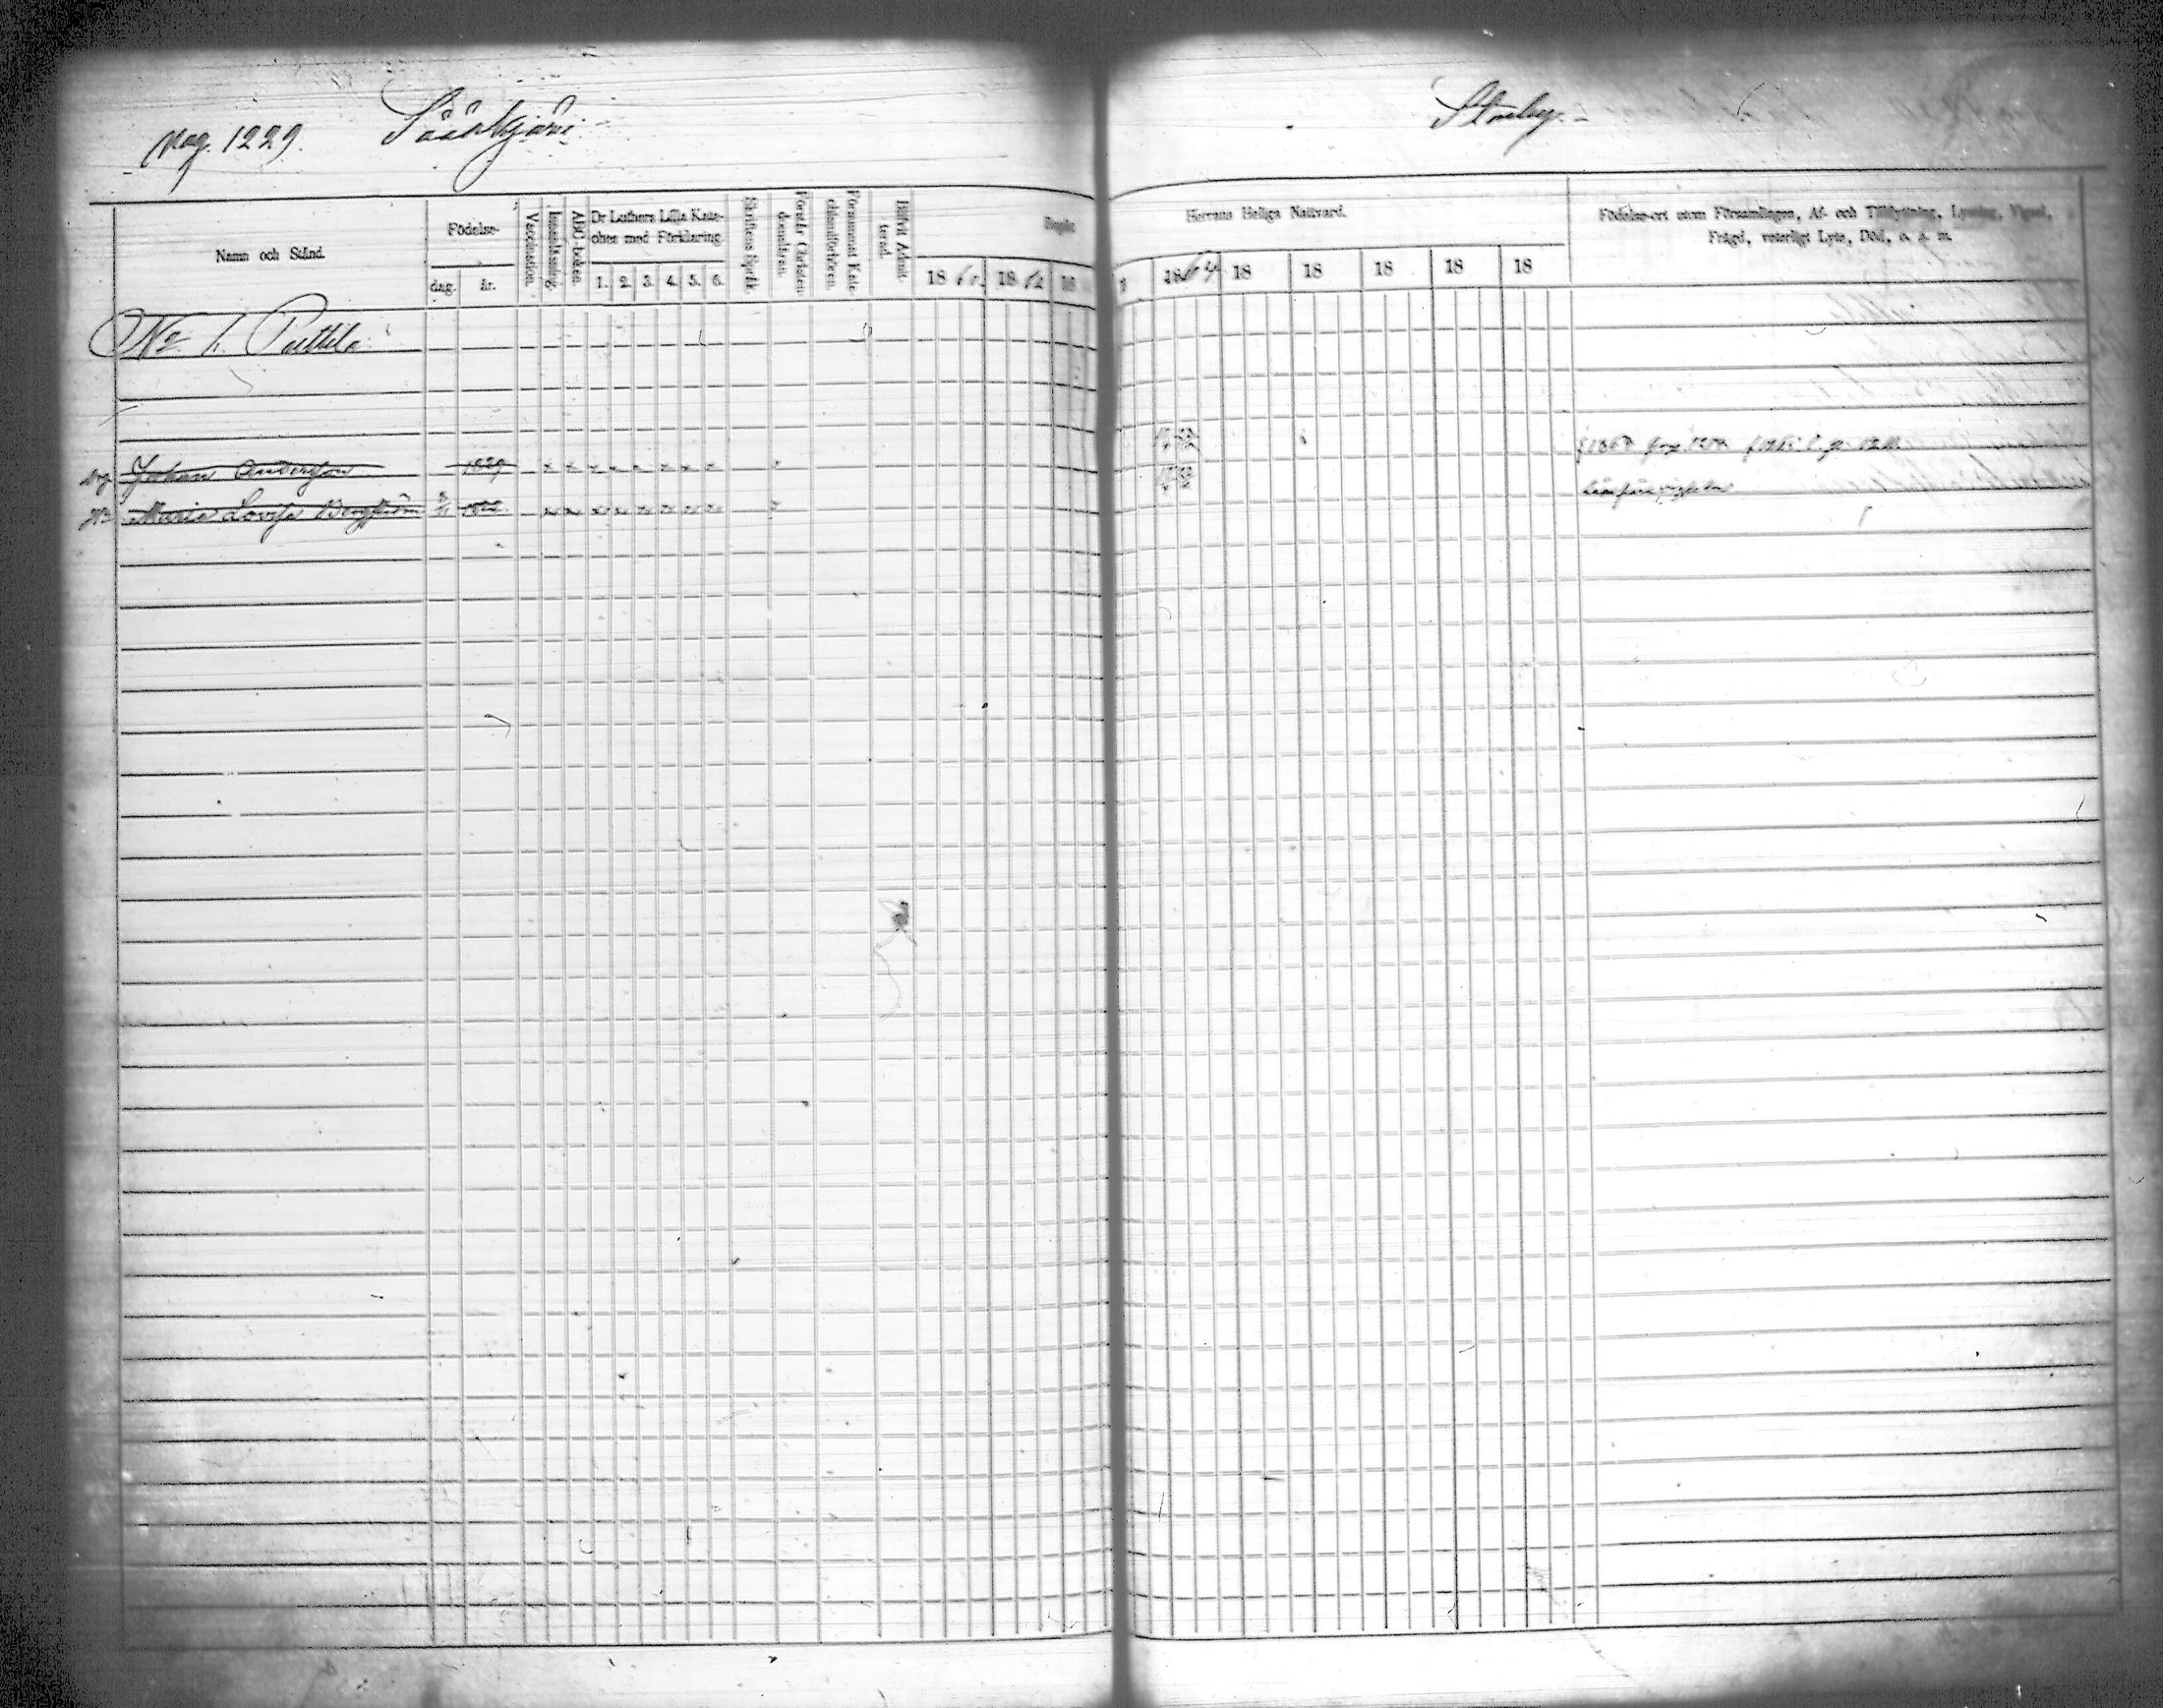 pag. 1229. Sääskjärvi
Storby.
Namn och Stånd.
Födelse-
dag. år.
Vaccination.
Innanläsning.
ABC-boken.
Dr Luthers Lilla Kate-
ches med Förklaring.
1. 2. 3. 4. 5. 6.
Skriftens Språk.
Förstår Christen-
domsläran.
Försummat Kate-
chismiförhören.
Blifvit Admit-
terad.
Begått
18 18 62 18
Herrans Heliga Nattvard.
1864 18 18 18 18 18
Födelse-ort utom Församlingen, Af- och Tillflyttning, Lysning, Vigsel,
Frägd, veterligt Lyte, Död, o. s. m.
No 1. Puttila
Johan Andersson 1829
Maria Lovisa Bergström